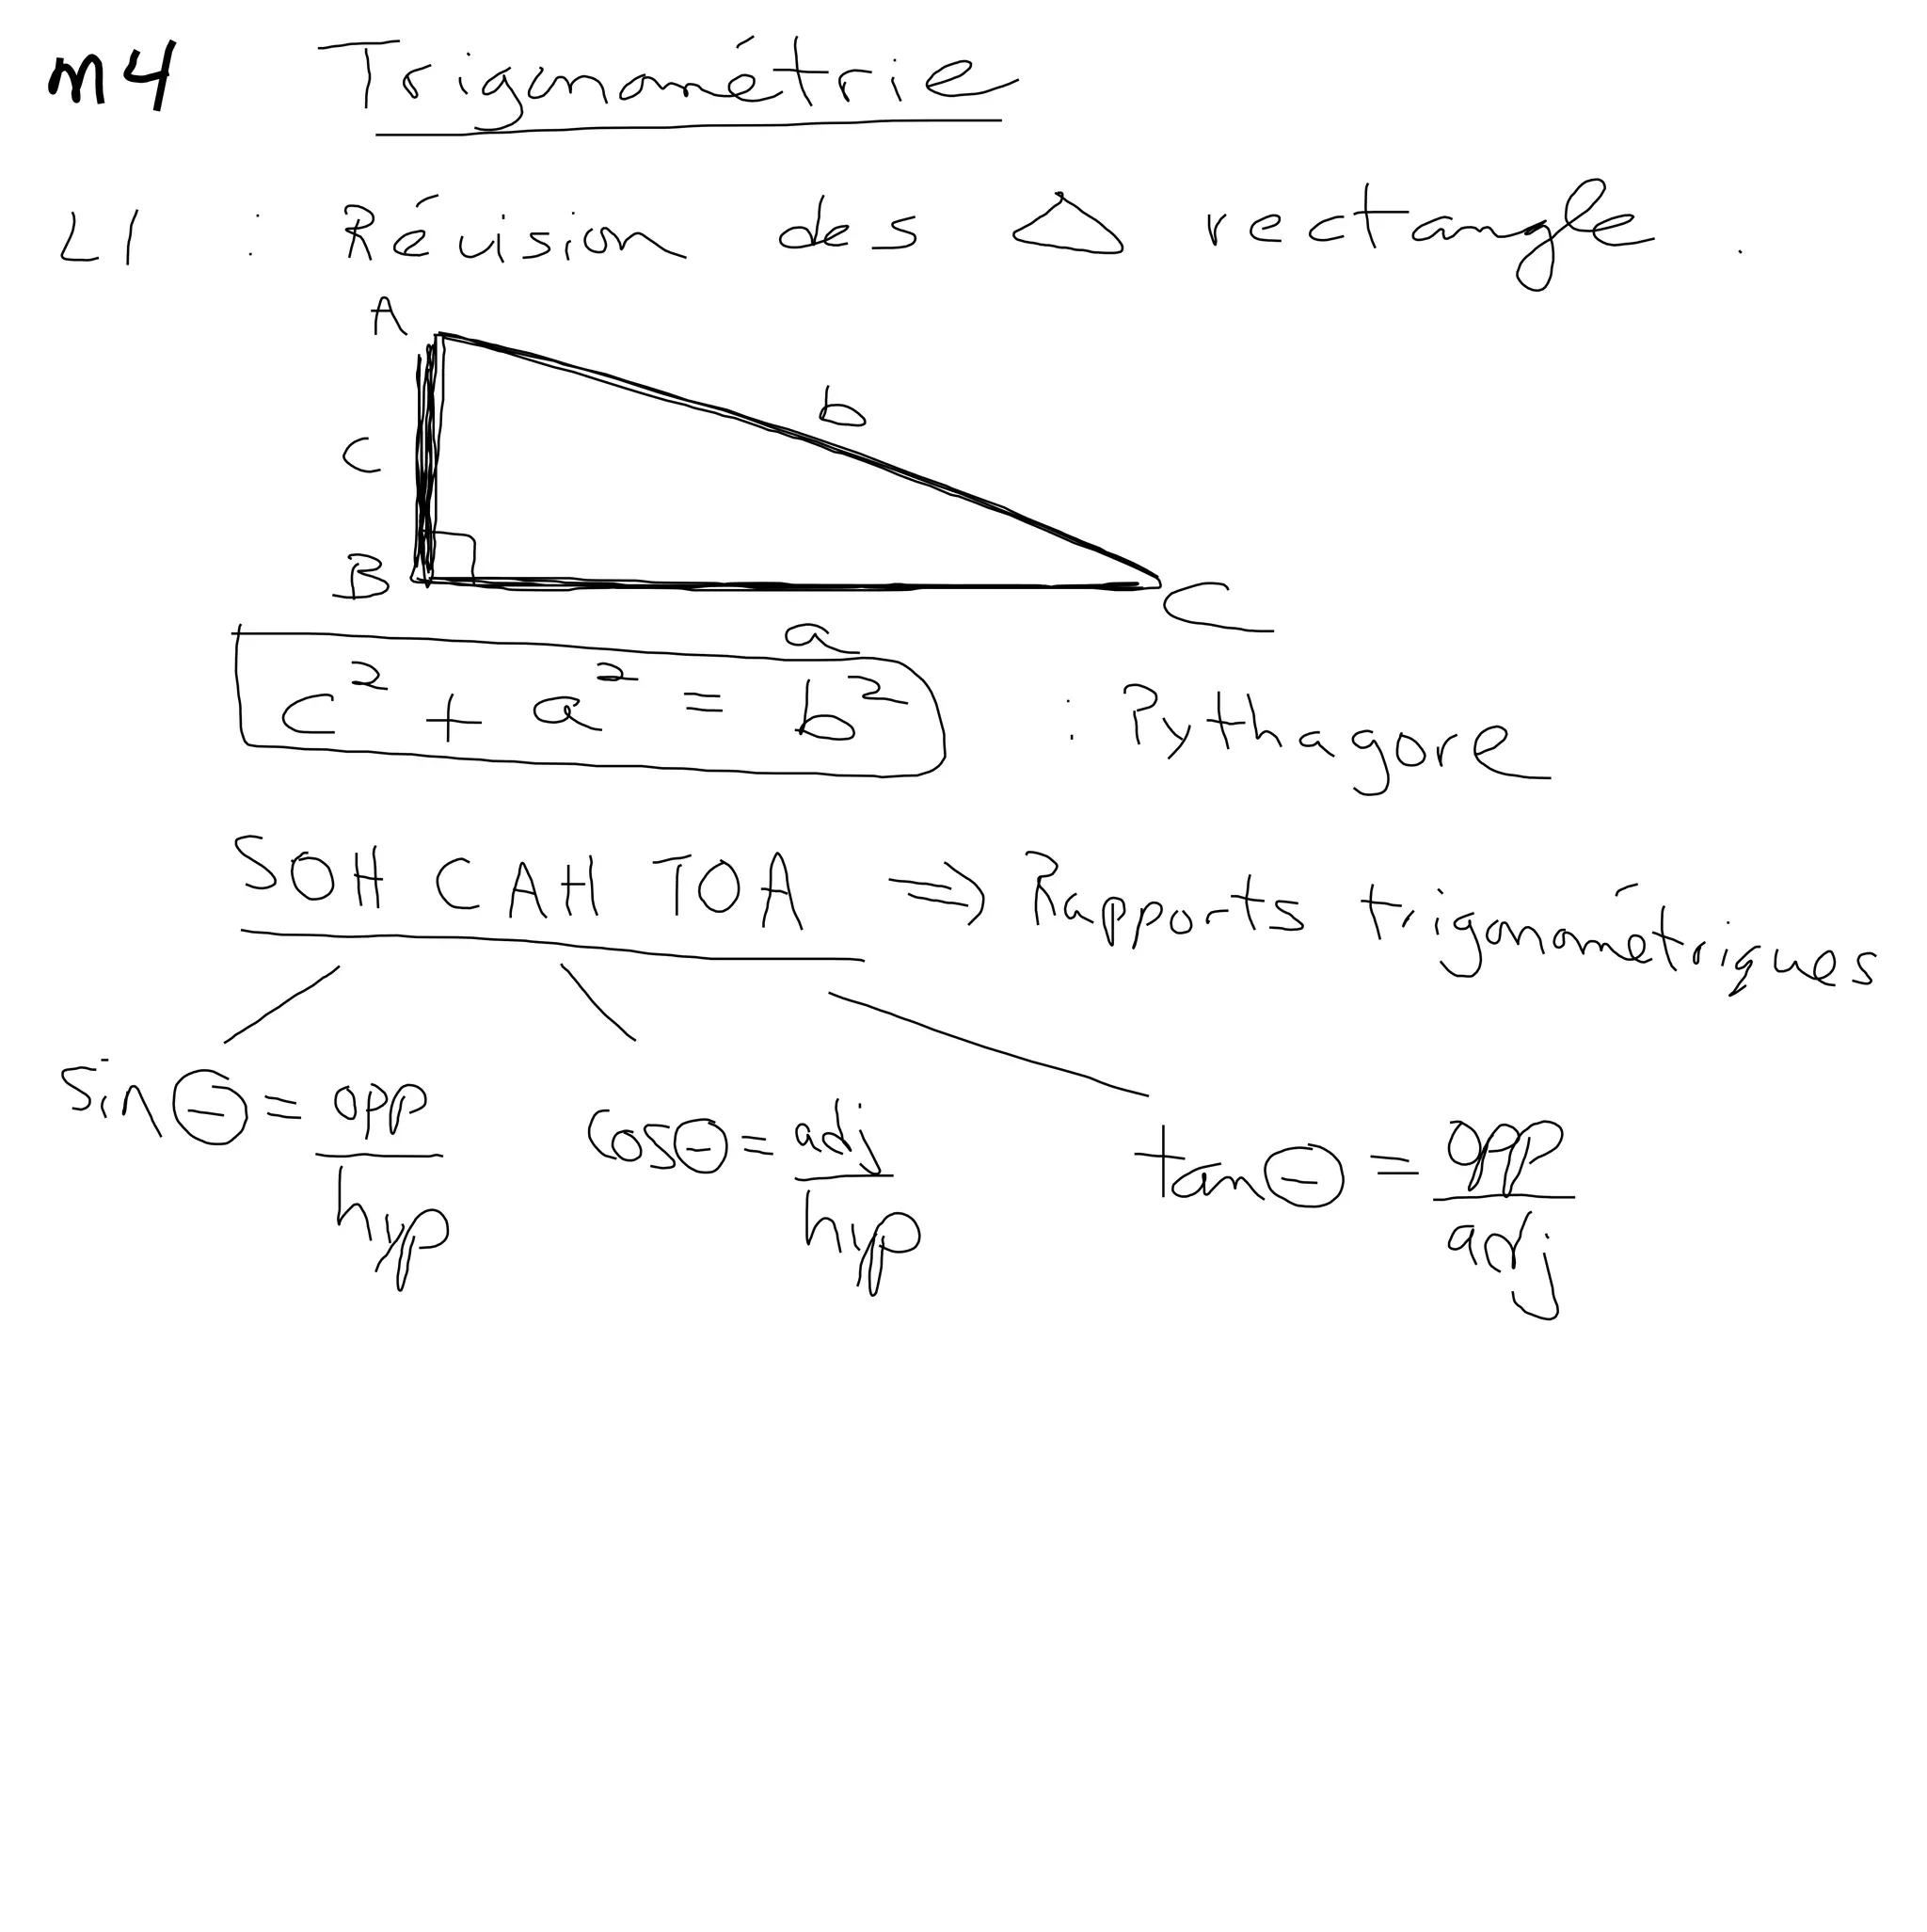 M4 Trigonométrie
L1 : Révision des Δ rectangle.
A
b
c
B
C
a
c² + a² = b² : Pythagore
SOH CAH TOA ⇒ Rapports trigonométriques
sin Θ = opp/hyp cos Θ = adj/hyp tan Θ = opp/adj